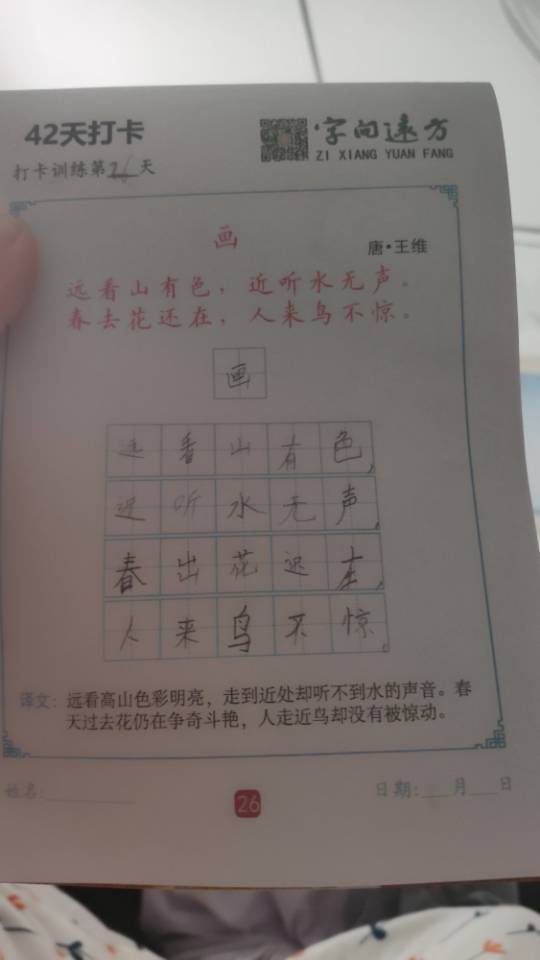 42天打卡
字向远方
ZI XIANG YUAN FANG
打卡训练第26天
画
唐·王维
远看山有色，近听水无声。
春去花还在，人来鸟不惊。
画
远看山有色，
迟听水无声，
春出花迟在，
人来鸟不惊。
译文：远看高山色彩明亮，走到近处却听不到水的声音。春
天过去花仍在争奇斗艳，人走近鸟却没有被惊动。
姓名：
26
日期： 月 日